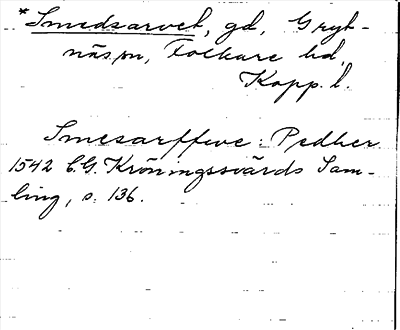 *Smedsarvet, gd, Gryt-
näs sn, Folkare hd,
Kopp. l.
Smesarffwe: Pedher
1542 C.G. Kröningssvärds Sam-
ling, s. 136.